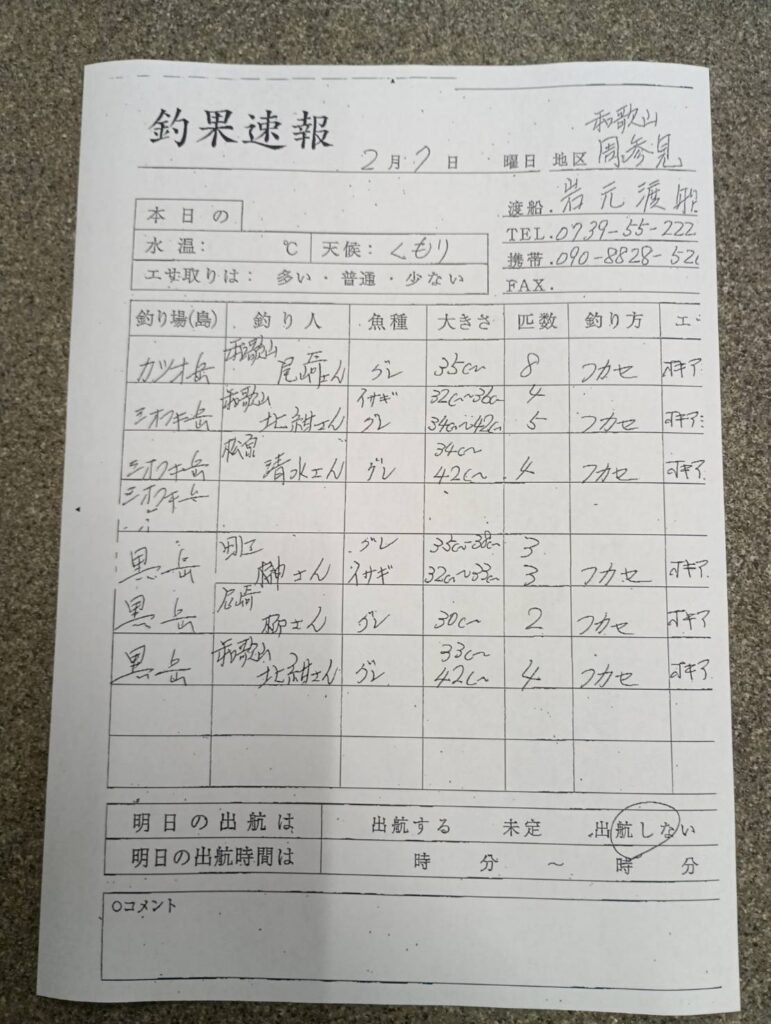 釣果速報
2月7日 曜日 地区 和歌山 周参見
渡船. 岩元渡船
TEL. 0739-55-222
携帯. 090-8828-52
FAX.
本日の
水温: ℃ 天候: くもり
エサ取りは: 多い・普通・少ない
釣り場(島) 釣り人 魚種 大きさ 匹数 釣り方 エ
カツオ岳 和歌山 尾崎さん グレ 35cm 8 フカセ オキア
和歌山 イサギ 32cm~36cm 4
ミオフキ岳 北紺さん グレ 34cm~42cm 5 フカセ オキアミ
松原 34cm~
ミオフキ岳 清水さん グレ 42cm 4 フカセ オキア
ミオフキ岳
グレ 35cm~38cm 3
黒岳 榊さん イサギ 32cm~33cm 3 フカセ オキア
尼崎
黒岳 柳さん グレ 30cm 2 フカセ オキア
和歌山 33cm~
黒岳 北紺さん グレ 42cm 4 フカセ オキア
明日の出航は 出航する 未定 出航しない
明日の出航時間は 時 分 ~ 時 分
○コメント